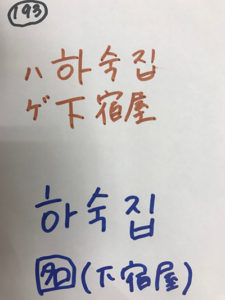 193
ハ 하숙집
ゲ 下宿屋
하숙집
(下宿屋)